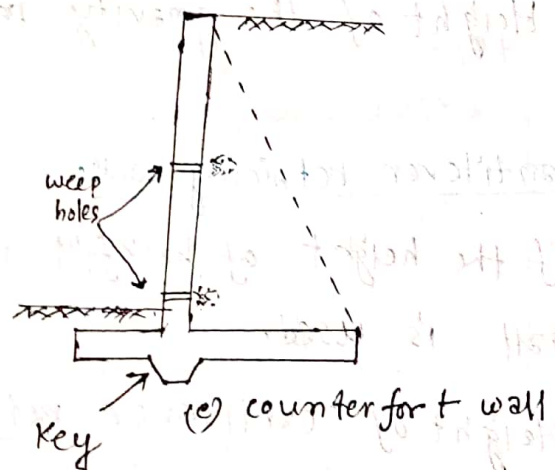 weep
holes
Key
(e) counterfort wall